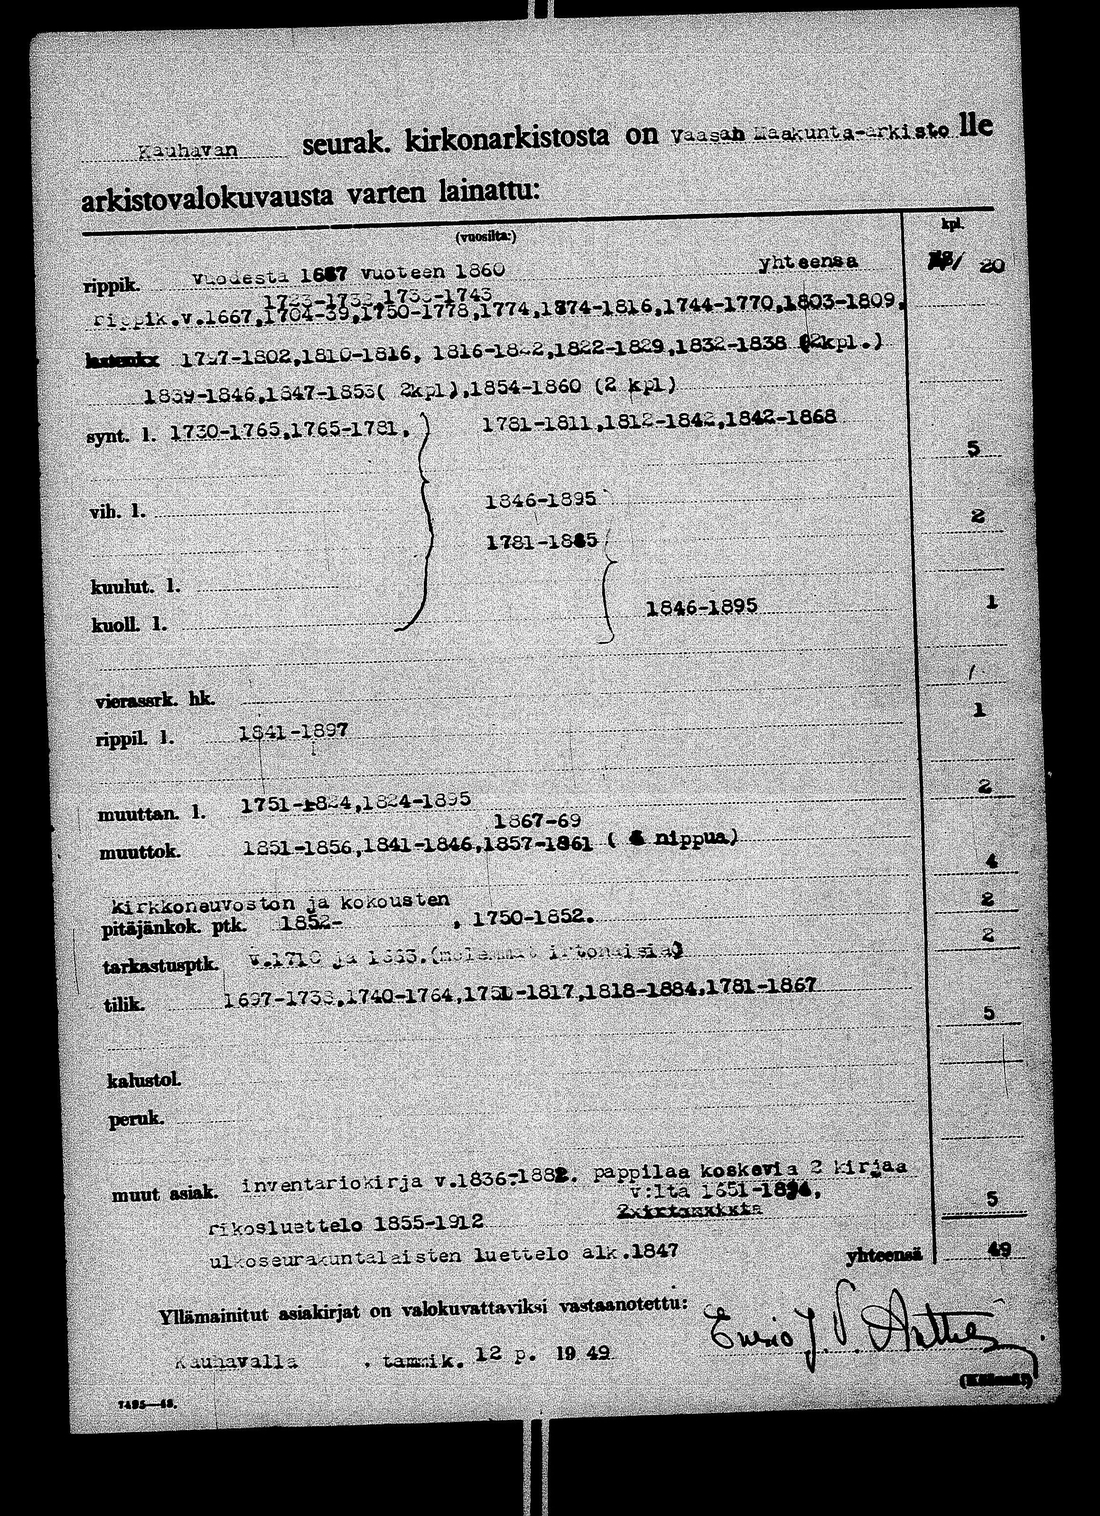 Kauhavan seurak. kirkonarkistosta on Vaasan Maakunta-arkisto lle
arkistovalokuvausta varten lainattu:
(vuosilta:) kpl.
rippik. Vuodesta 1667 vuoteen 1860 yhteensä / 20
1733-1743
rippik.v.1667,1704-39,1750-1778,1774,1874-1816,1744-1770,1803-1809,
1797-1802,1810-1816, 1816-1822,1822-1829,1832-1838 (2kpl.)
1839-1846,1847-1853( 2kpl),1854-1860 (2 kpl)
synt. l. 1730-1765,1765-1781, 1781-1811,1812-1842,1842-1868
5
vih. l. 1846-1895 2
1781-1885
kuulut. l.
kuoll. l. 1846-1895 1
vierassrk. hk. /
rippil. l. 1841-1897 1
muuttan. l. 1751-1824,1824-1895 2
1867-69
muuttok. 1851-1856,1841-1846,1857-1861 ( nippua)
4
kirkkoneuvoston ja kokousten 2
pitäjänkok. ptk. 1852- , 1750-1852.
tarkastusptk. v.1710 ja 1663.(molemmat irtonaisia) 2
tilik. 1697-1738,1740-1764,1751-1817,1818-1884,1781-1867
5
kalustol.
peruk.
muut asiak. inventariokirja v.1836-1882. pappilaa koskevia 2 kirjaa
v:lta 1651-1894, 5
rikosluettelo 1855-1912
ulkoseurakuntalaisten luettelo alk.1847 yhteensä 49
Yllämainitut asiakirjat on valokuvattaviksi vastaanotettu:
Kauhavalla , tammik. 12 p. 19 49
7495—48.